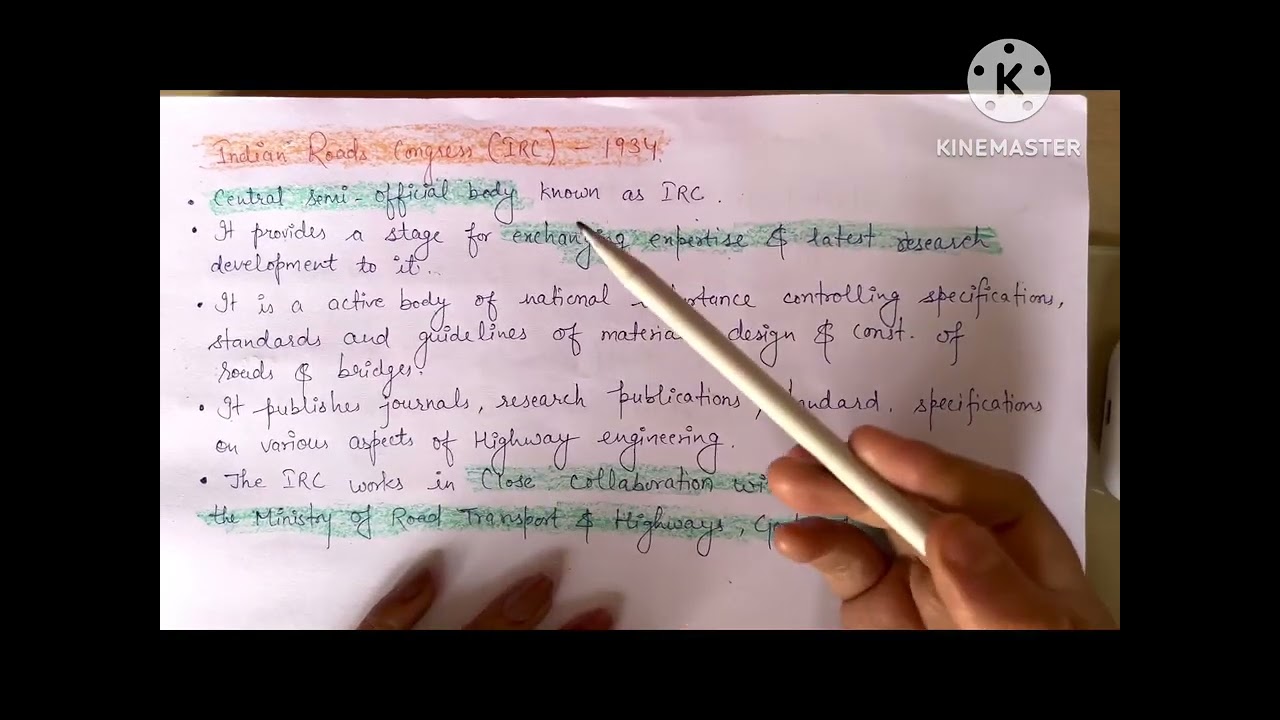 KINEMASTER
Indian Roads Congress (IRC) - 1934.
• Central semi-official body known as IRC.
• It provides a stage for exchanging expertise & latest research
development to it.
• It is a active body of national controlling specifications,
standards and guidelines of material design & const. of
roads & bridges.
• It publishes journals, research publications, standard, specifications
on various aspects of Highway engineering.
• The IRC works in Close collaboration
the Ministry of Road Transport & Highways,